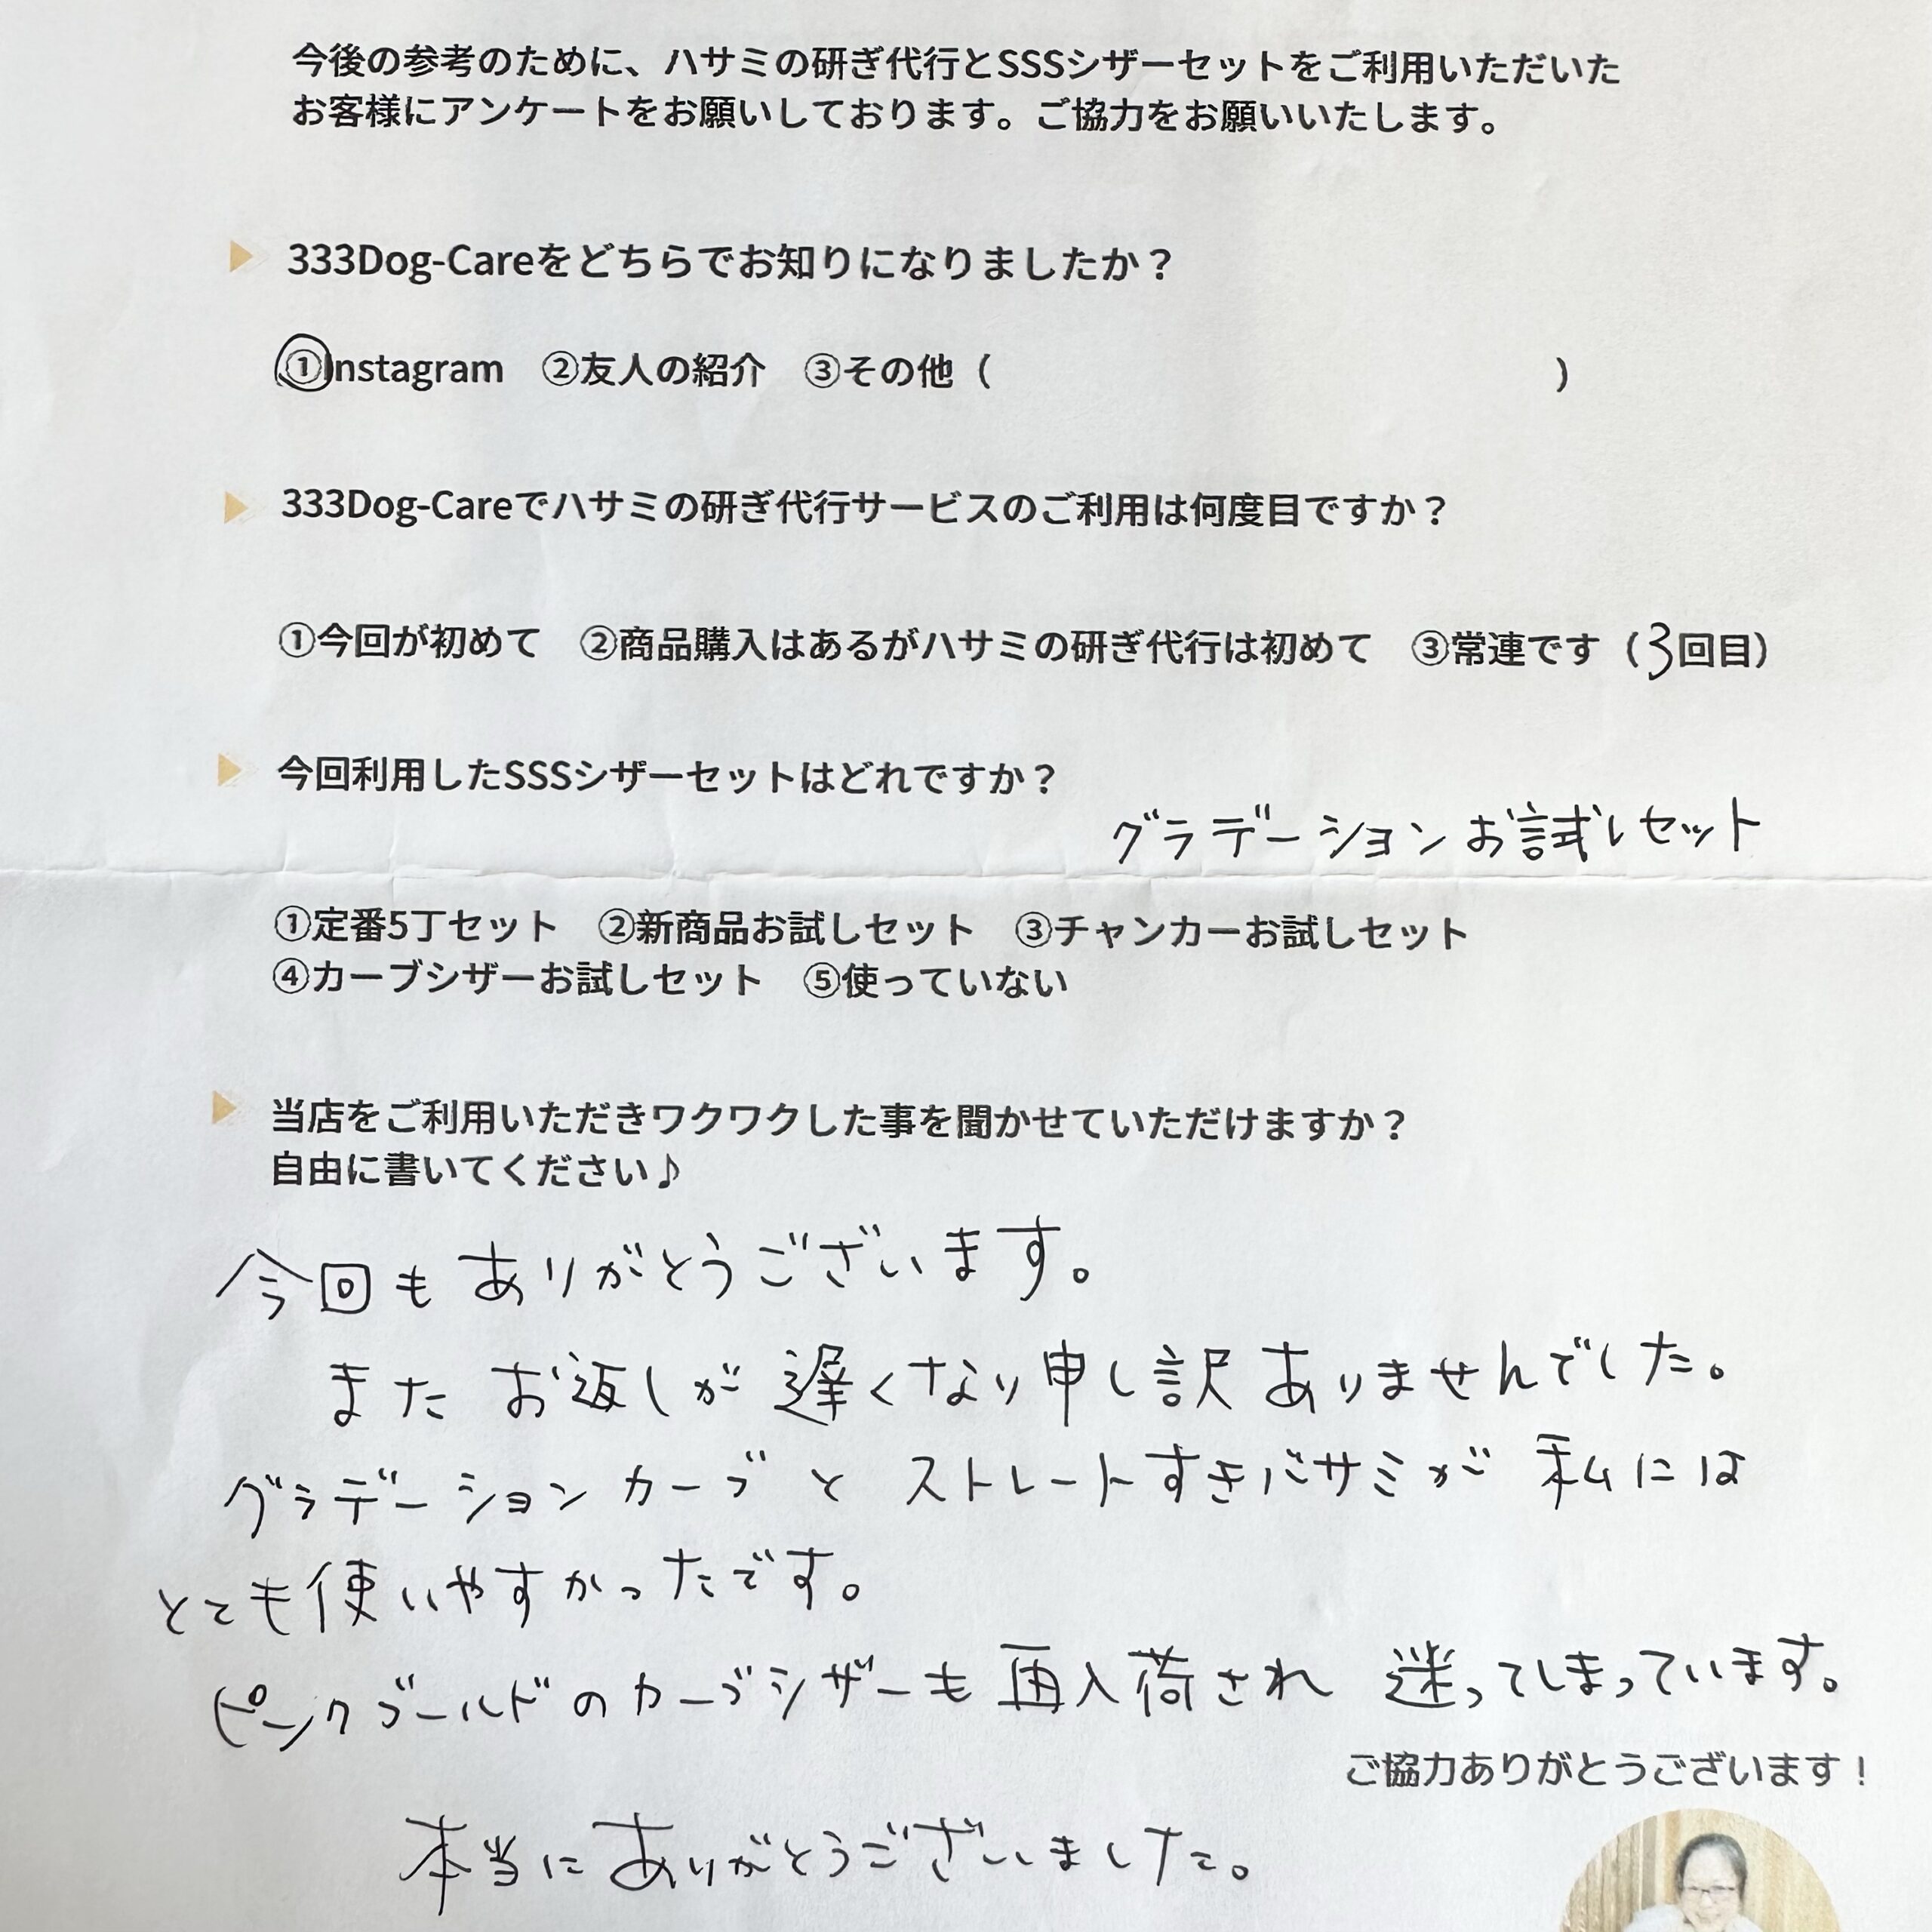 今後の参考のために、ハサミの研ぎ代行とSSSシザーセットをご利用いただいた
お客様にアンケートをお願いしております。ご協力をお願いいたします。
333Dog-Careをどちらでお知りになりましたか？
①Instagram　②友人の紹介　③その他（　　　　　　　　）
333Dog-Careでハサミの研ぎ代行サービスのご利用は何度目ですか？
①今回が初めて　②商品購入はあるがハサミの研ぎ代行は初めて　③常連です（3回目）
今回利用したSSSシザーセットはどれですか？
グラデーションお試しセット
①定番5丁セット　②新商品お試しセット　③チャンカーお試しセット
④カーブシザーお試しセット　⑤使っていない
当店をご利用いただきワクワクした事を聞かせていただけますか？
自由に書いてください♪
今回もありがとうございます。
またお返しが遅くなり申し訳ありませんでした。
グラデーションカーブとストレートすきバサミが私には
とても使いやすかったです。
ピンクゴールドのカーブシザーも再入荷され迷ってしまっています。
ご協力ありがとうございます！
本当にありがとうございました。